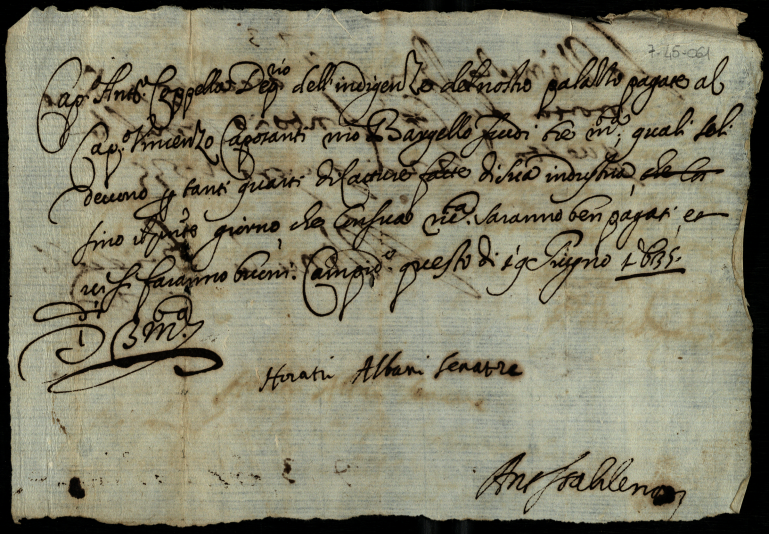 7.45-061
Cap.º Ant.º Cappella Dep.rio dell'indigenze del nostro palazzo pagate al
Cap.º Vincenzo Caporanti nro Bargello scudi tre m.ta quali seli
devono p tanti quarti di Catture fatte di sua industria
sino al pnte giorno che con sua ric.ta saranno ben pagati, et
vi si faranno buoni. Campid.º questo di 19 Giugno 1635.
Di
3 m.ta
Horatii Albani Senatre